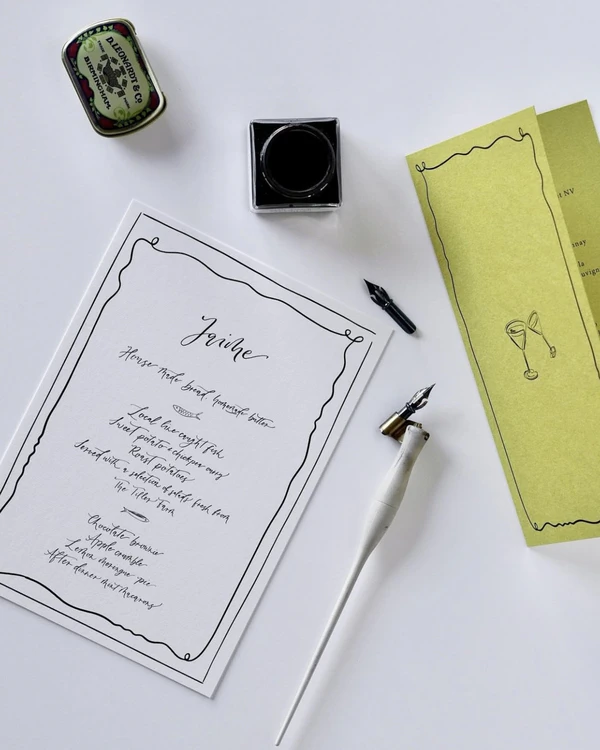 D. LEONARDT & Co
BIRMINGHAM
Jaime
House made bread, homemade butter
Local line caught fish
Sweet potato & chickpea curry
Roast potatoes
Served with a selection of salads fresh from
The Tiller Farm
Chocolate brownie
Apple crumble
Lemon meringue pie
After dinner mint macarons
NV